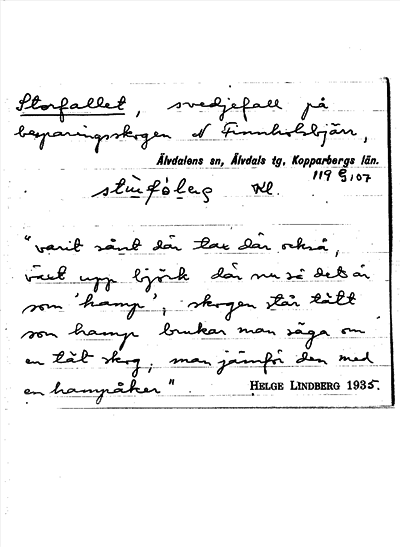 Storfallet, svedjefall på
besparingsskogen N Finnholsbjärr,
Älvdalens sn, Älvdals tg, Kopparbergs län.
119 G 107
Kl.
"varit sånt där tax där också,
växt upp björk där nu så det är
som 'hamp'; skogen står tätt
som hamp brukar man säga om
en tät skog; man jämför den med
en hampåker"
HELGE LINDBERG 1935.